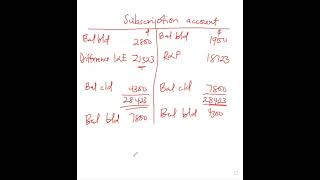 Subscription account
$ $
Bal b/d 2800 Bal b/d 1900
Difference I&E 21323 R&P 18723
Bal c/d 4300 Bal c/d 7800
28423 28423
Bal b/d 7800 Bal b/d 4300